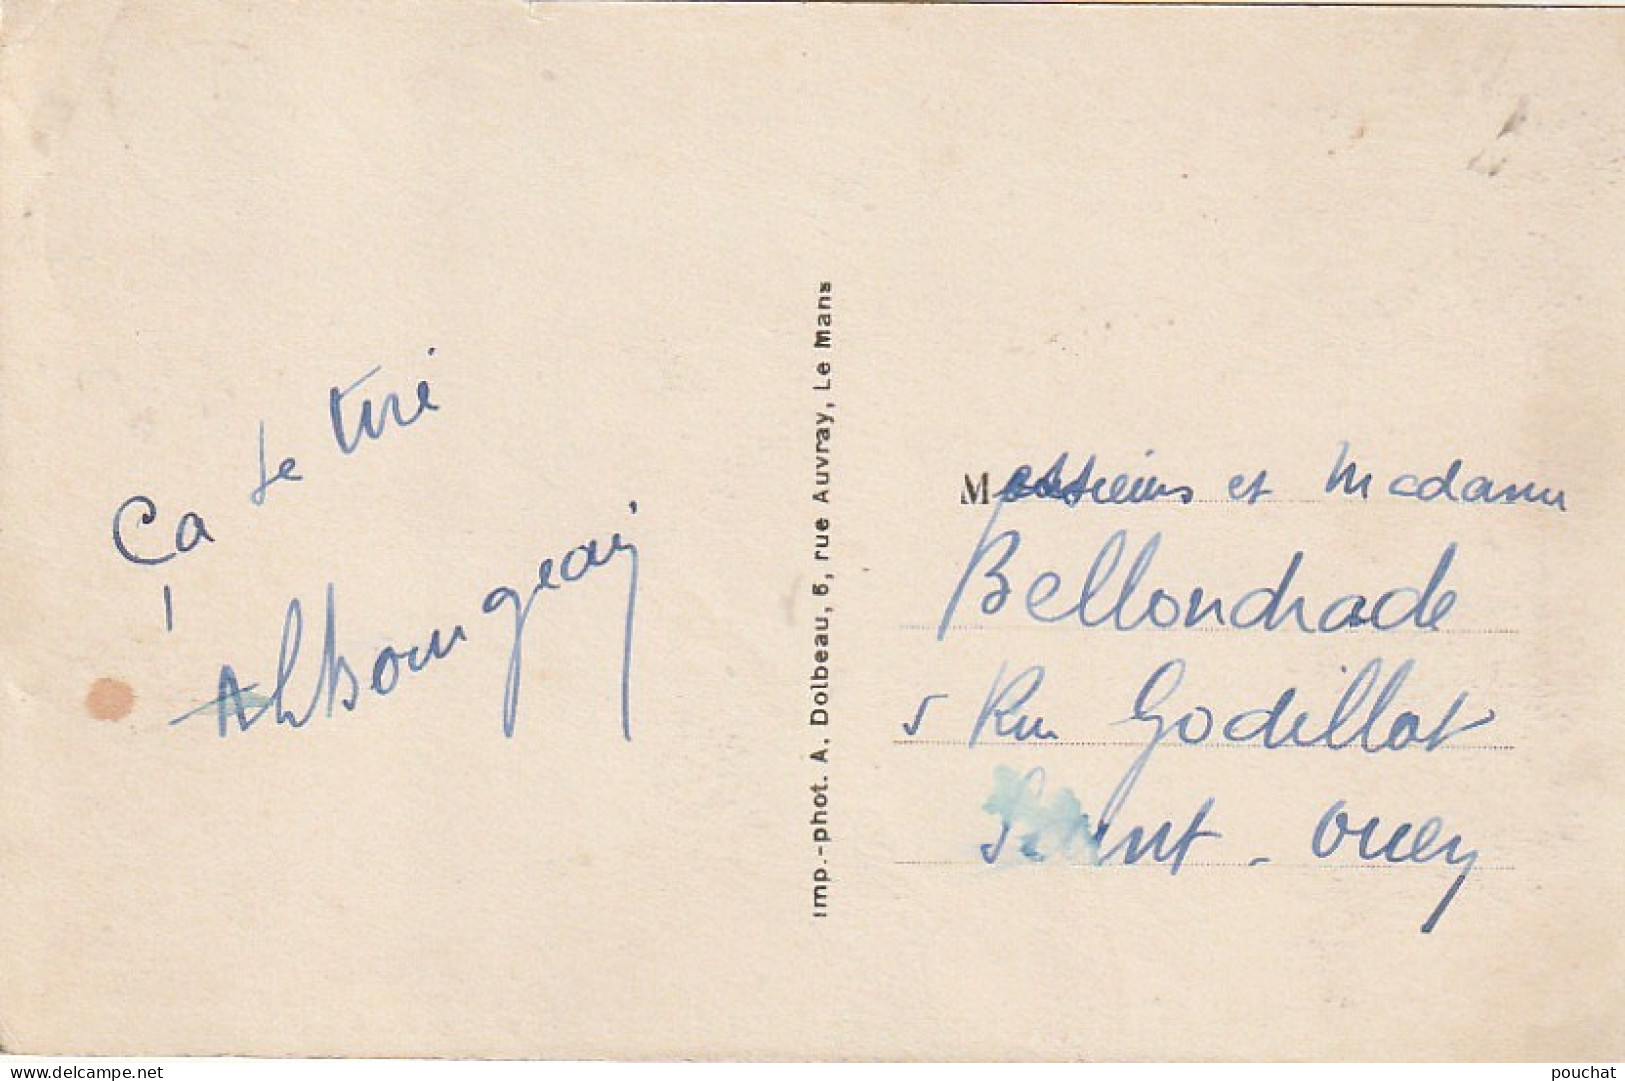 Ça se tire
!
Imp.-phot. A. Dolbeau, 5, rue Auvray, Le Mans
Messieurs et Madame
Bellondrade
5 Rue Godillot
Saint-Ouen
www.delcampe.net
pouchat